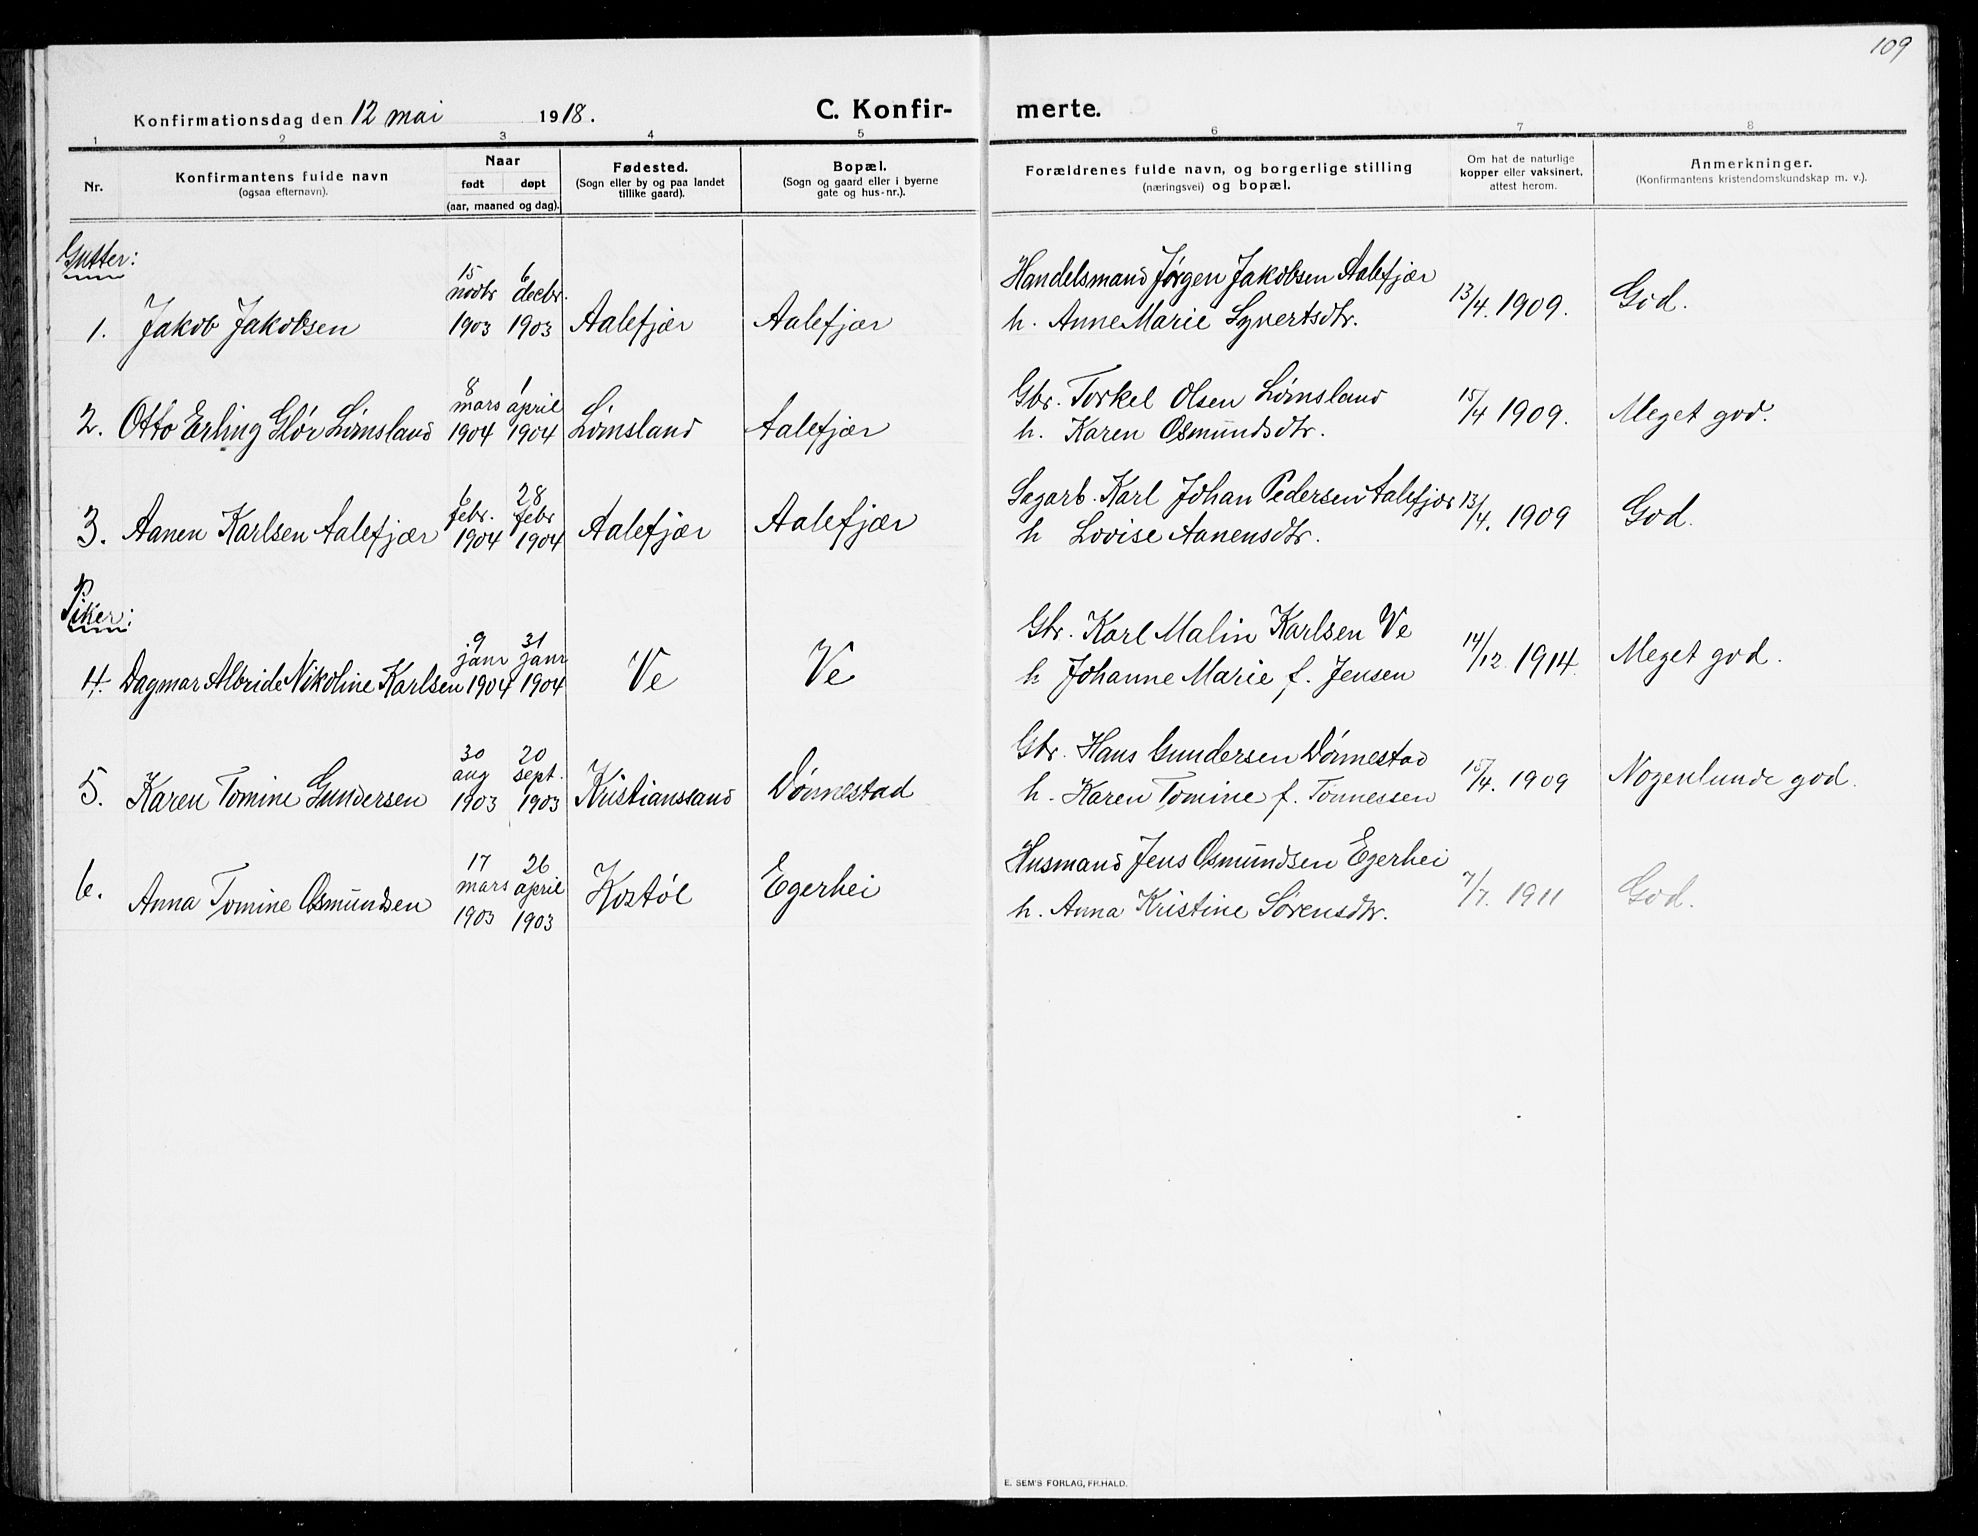 109
Konfirmationsdag den 12 mai 1918. C. Konfir- merte.
1 2 3 4 5 6 7 8
Nr.
Konfirmantens fulde navn
(ogsaa efternavn).
Naar
født døpt
(aar, maaned og dag).
Fødested.
(Sogn eller by og paa landet
tillike gaard).
Bopæl.
(Sogn og gaard eller i byerne
gate og hus-nr.).
Forældrenes fulde navn, og borgerlige stilling
(næringsvei) og bopæl.
Om hat de naturlige
kopper eller vaksinert,
attest herom.
Anmerkninger.
(Konfirmantens kristendomskundskap m. v.).
Gutter:
1. Jakob Jakobsen 15 novbr 1903 6 decbr. 1903 Aalefjær Aalefjær Handelsmand Jørgen Jakobsen Aalefjær
h. Anne Marie Syvertsdtr. 13/4. 1909. God.
2. Otto Erling Glør Lømsland 8 mars 1904 1 april 1904 Lømsland Aalefjær Gbr. Torkel Olsen Lømsland
h. Karen Osmundsdtr. 15/4 1909. Meget god.
3. Aanen Karlsen Aalefjær 6 febr. 1904 28 febr 1904 Aalefjær Aalefjær Sagarb. Karl Johan Pedersen Aalefjær
h Lovise Aanensdtr. 13/4. 1909 God.
Piker:
4. Dagmar Albride Nikoline Karlsen 9 janr 1904 31 janr 1904 Ve Ve Gbr. Karl Malin Karlsen Ve
h Johanne Marie f. Jensen 14/12. 1914. Meget god.
5. Karen Tomine Gundersen 30 aug 1903 20 sept. 1903 Kristianssand Dønnestad Gbr. Hans Gundersen Dønnestad
h. Karen Tomine f. Tønnessen 15/4. 1909 Nogenlunde god.
6. Anna Tomine Osmundsen 17 mars 1903 26 april 1903 Kostøl Egerhei Husmand Jens Osmundsen Egerhei
h. Anna Kristine Sørensdtr. 7/7. 1911 God.
E. SEM'S FORLAG, FR.HALD.